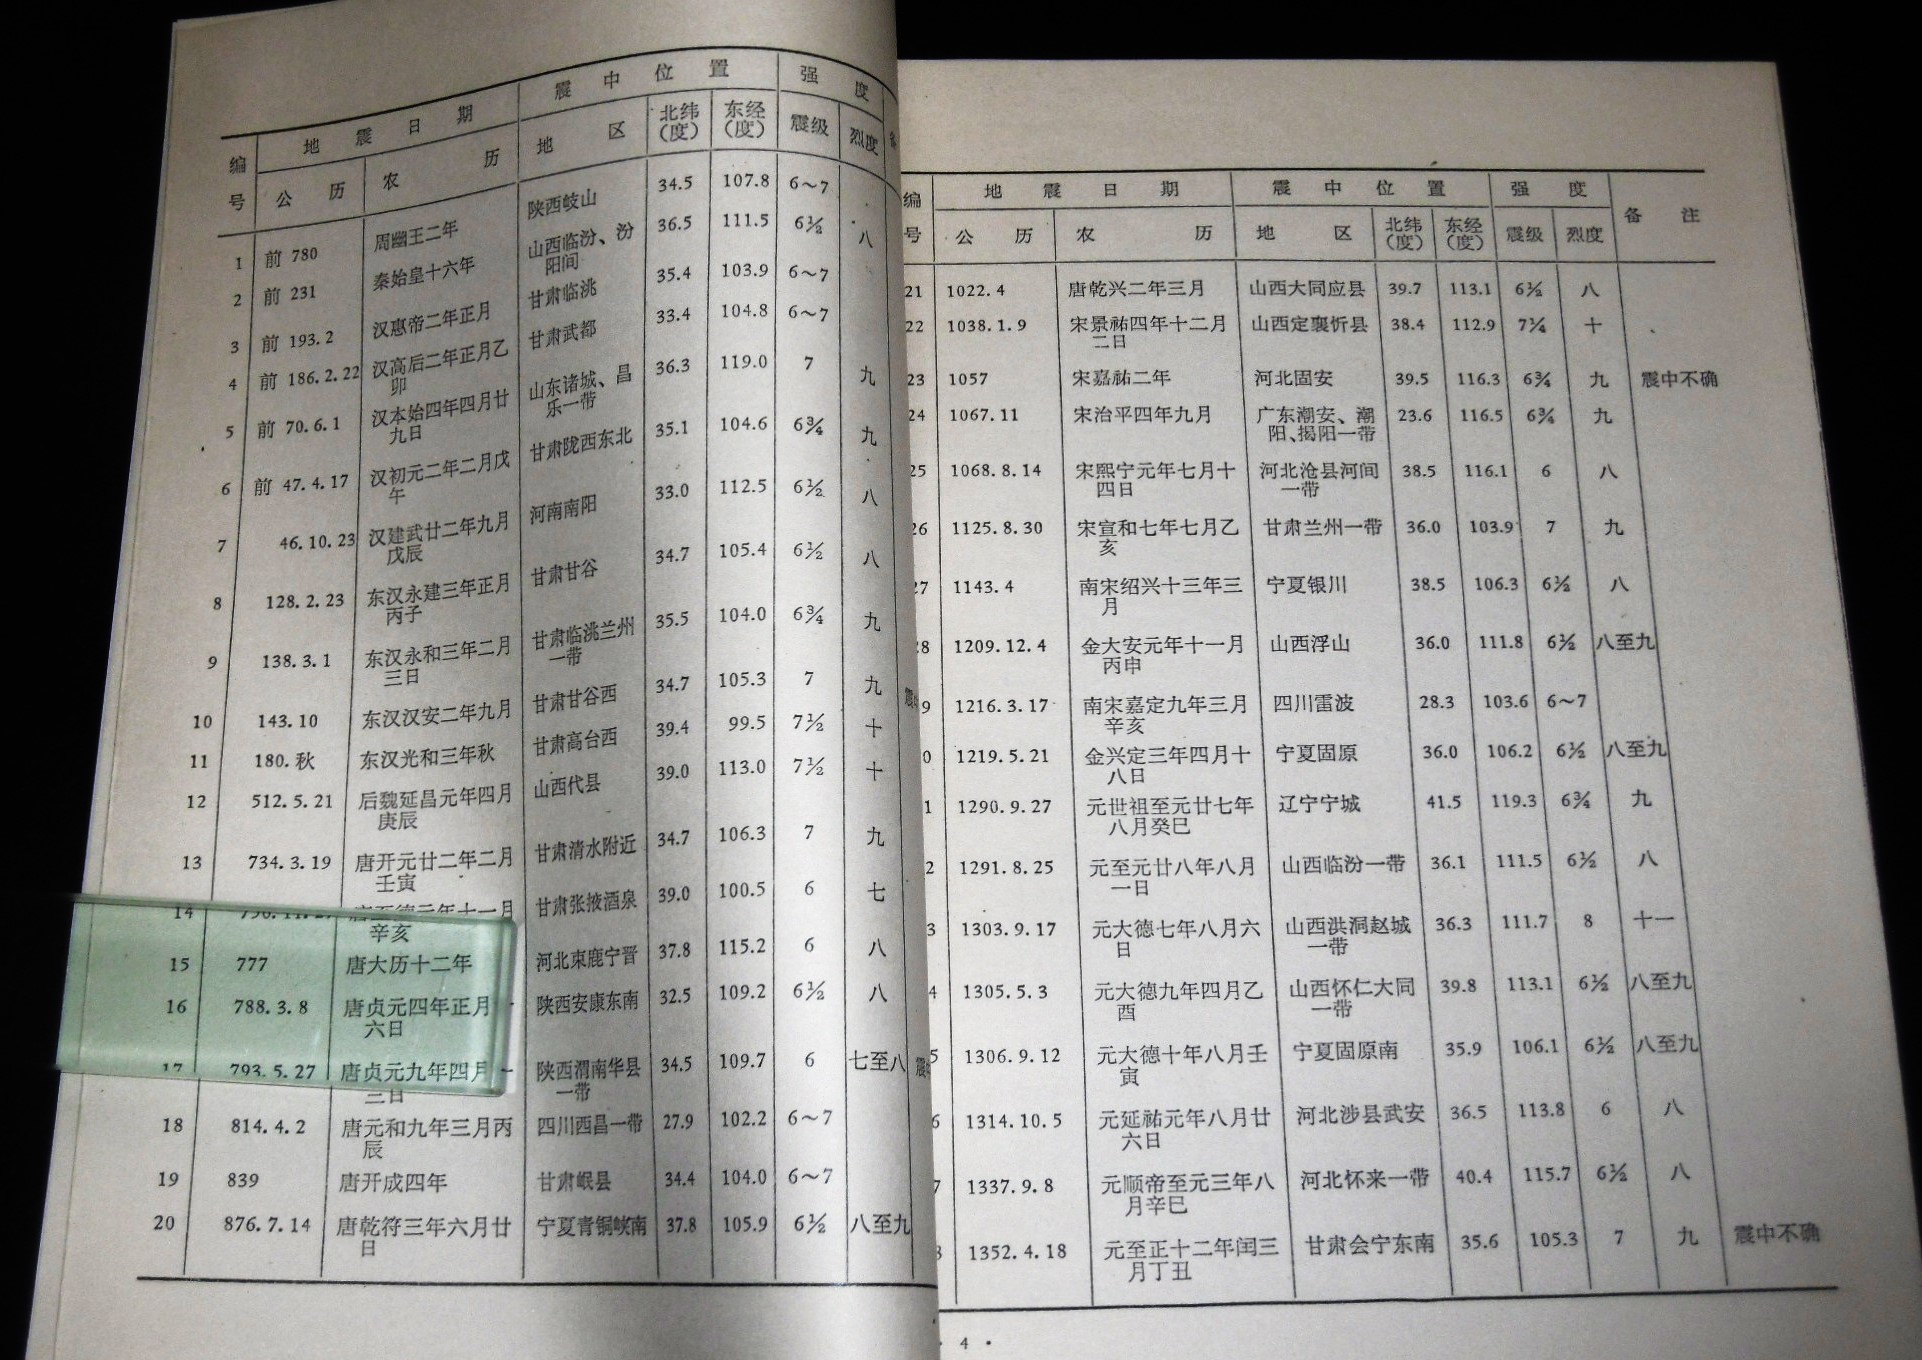 编号 地震日期 震中位置 强度 备
公历 农历 地区 北纬(度) 东经(度) 震级 烈度
1 前 780 周幽王二年 陕西岐山 34.5 107.8 6～7
2 前 231 秦始皇十六年 山西临汾、汾 36.5 111.5 6½ 八
阳间
3 前 193.2 汉惠帝二年正月 甘肃临洮 35.4 103.9 6～7
4 前 186.2.22 汉高后二年正月乙 甘肃武都 33.4 104.8 6～7
卯
5 前 70.6.1 汉本始四年四月廿 山东诸城、昌 36.3 119.0 7 九
九日 乐一带
6 前 47.4.17 汉初元二年二月戊 甘肃陇西东北 35.1 104.6 6¾ 九
午
7 46.10.23 汉建武廿二年九月 河南南阳 33.0 112.5 6½ 八
戊辰
8 128.2.23 东汉永建三年正月 甘肃甘谷 34.7 105.4 6½ 八
丙子
9 138.3.1 东汉永和三年二月 甘肃临洮兰州 35.5 104.0 6¾ 九
三日 一带
10 143.10 东汉汉安二年九月 甘肃甘谷西 34.7 105.3 7 九 震
11 180.秋 东汉光和三年秋 甘肃高台西 39.4 99.5 7½ 十
12 512.5.21 后魏延昌元年四月 山西代县 39.0 113.0 7½ 十
庚辰
13 734.3.19 唐开元廿二年二月 甘肃清水附近 34.7 106.3 7 九
壬寅
14 756.11.27 唐至德元年十一月 甘肃张掖酒泉 39.0 100.5 6 七
辛亥
15 777 唐大历十二年 河北束鹿宁晋 37.8 115.2 6 八
16 788.3.8 唐贞元四年正月 陕西安康东南 32.5 109.2 6½ 八
六日
17 793.5.27 唐贞元九年四月 陕西渭南华县 34.5 109.7 6 七至八 震
三日 一带
18 814.4.2 唐元和九年三月丙 四川西昌一带 27.9 102.2 6～7
辰
19 839 唐开成四年 甘肃岷县 34.4 104.0 6～7
20 876.7.14 唐乾符三年六月廿 宁夏青铜峡南 37.8 105.9 6½ 八至九
日
编号 地震日期 震中位置 强度 备注
公历 农历 地区 北纬(度) 东经(度) 震级 烈度
21 1022.4 唐乾兴二年三月 山西大同应县 39.7 113.1 6½ 八
22 1038.1.9 宋景祐四年十二月 山西定襄忻县 38.4 112.9 7¼ 十
二日
23 1057 宋嘉祐二年 河北固安 39.5 116.3 6¾ 九 震中不确
24 1067.11 宋治平四年九月 广东潮安、潮 23.6 116.5 6¾ 九
阳、揭阳一带
25 1068.8.14 宋熙宁元年七月十 河北沧县河间 38.5 116.1 6 八
四日 一带
26 1125.8.30 宋宣和七年七月乙 甘肃兰州一带 36.0 103.9 7 九
亥
27 1143.4 南宋绍兴十三年三 宁夏银川 38.5 106.3 6½ 八
月
28 1209.12.4 金大安元年十一月 山西浮山 36.0 111.8 6½ 八至九
丙申
9 1216.3.17 南宋嘉定九年三月 四川雷波 28.3 103.6 6～7
辛亥
0 1219.5.21 金兴定三年四月十 宁夏固原 36.0 106.2 6½ 八至九
八日
1 1290.9.27 元世祖至元廿七年 辽宁宁城 41.5 119.3 6¾ 九
八月癸巳
2 1291.8.25 元至元廿八年八月 山西临汾一带 36.1 111.5 6½ 八
一日
3 1303.9.17 元大德七年八月六 山西洪洞赵城 36.3 111.7 8 十一
日 一带
4 1305.5.3 元大德九年四月乙 山西怀仁大同 39.8 113.1 6½ 八至九
酉 一带
5 1306.9.12 元大德十年八月壬 宁夏固原南 35.9 106.1 6½ 八至九
寅
6 1314.10.5 元延祐元年八月廿 河北涉县武安 36.5 113.8 6 八
六日
7 1337.9.8 元顺帝至元三年八 河北怀来一带 40.4 115.7 6½ 八
月辛巳
8 1352.4.18 元至正十二年闰三 甘肃会宁东南 35.6 105.3 7 九 震中不确
月丁丑
· 4 ·